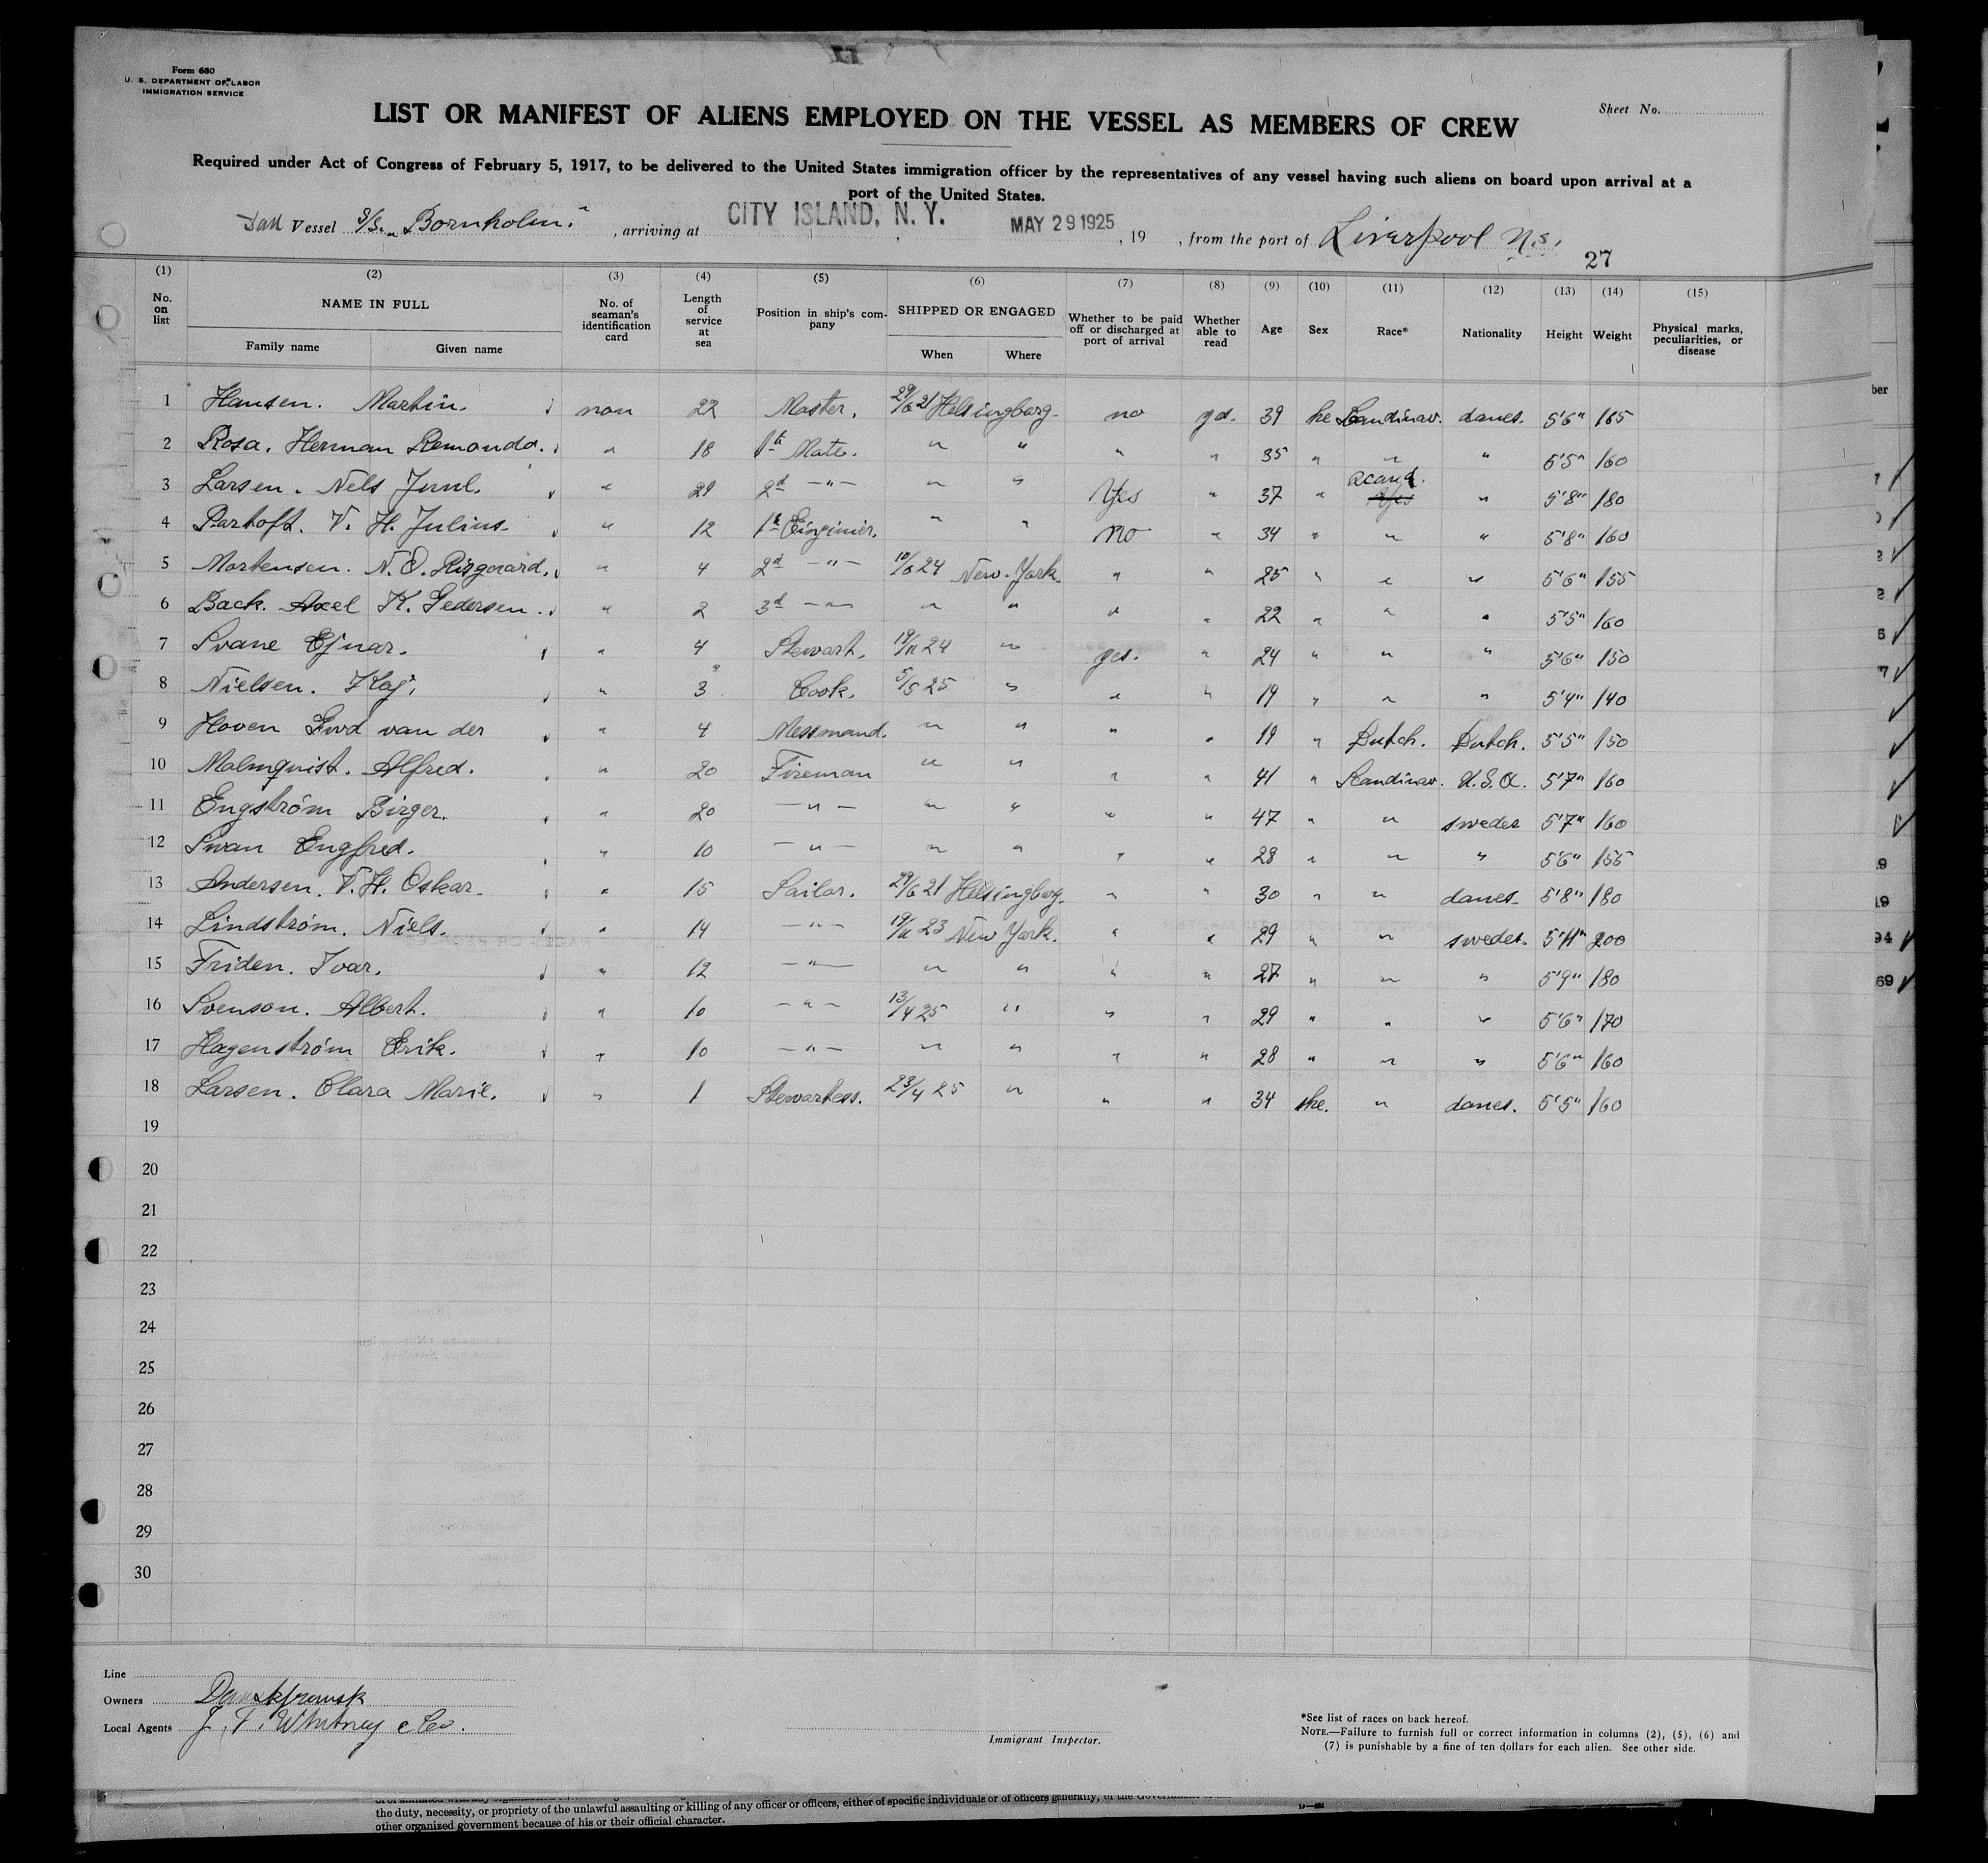 Form 680
U. S. DEPARTMENT OF LABOR
IMMIGRATION SERVICE
Sheet No.
LIST OR MANIFEST OF ALIENS EMPLOYED ON THE VESSEL AS MEMBERS OF CREW
Required under Act of Congress of February 5, 1917, to be delivered to the United States immigration officer by the representatives of any vessel having such aliens on board upon arrival at a
port of the United States.
Dan Vessel S/S. „Bornholm." , arriving at CITY ISLAND, N. Y. , MAY 29 1925 , 19 , from the port of Liverpool N.S.
27
(1) (2) (3) (4) (5) (6) (7) (8) (9) (10) (11) (12) (13) (14) (15)
No. on list NAME IN FULL Family name Given name No. of seaman's identification card Length of service at sea Position in ship's company SHIPPED OR ENGAGED When Where Whether to be paid off or discharged at port of arrival Whether able to read Age Sex Race* Nationality Height Weight Physical marks, peculiarities, or disease
1 Hansen. Martin. non 22 Master. 29/6 21 Helsingborg. no yes. 39 he Scandinav. danes. 5'6" 165
2 Rosa. Herman Remondo. " 18 1te Mate. " " " " 35 " " " 5'5" 160
3 Larsen. Nels Juul. " 29 2d —"— " " Yes " 37 " scand. " 5'8" 180
4 Partoft. V. H. Julius. " 12 1te Enginier. " " no " 34 " " " 5'8" 160
5 Mortensen. N.O. Risgaard. " 4 2d —"— 10/6 24 New-York. " " 25 " " " 5'6" 155
6 Back. Axel K. Pedersen. " 2 3d —"— " " " " 22 " " " 5'5" 160
7 Svane Ejnar. " 4 Stewart. 19/11 24 " yes. " 24 " " " 5'6" 150
8 Nielsen. Kaj. " 3 Cook. 5/5 25 " " " 19 " " " 5'4" 140
9 Hoven van der " 4 Messmand. " " " " 19 " Dutch. Dutch. 5'5" 150
10 Malmquist. Alfred. " 20 Fireman " " " " 41 " Scandinav. U.S.A. 5'7" 160
11 Engström Birger. " 20 —"— " " " " 47 " " swedes 5'7" 160
12 Swan Engfred. " 10 —"— " " " " 28 " " " 5'6" 155
13 Andersen. V.H. Oskar. " 15 Sailor. 29/6 21 Helsingborg. " " 30 " " danes. 5'8" 180
14 Lindström. Niels. " 14 —"— 19/11 23 New York. " " 29 " " swedes. 5'11" 200
15 Friden. Ivar. " 12 —"— " " " " 27 " " " 5'9" 180
16 Svenson. Albert. " 10 —"— 13/4 25 " " " 29 " " " 5'6" 170
17 Hagenström Erik. " 10 —"— " " " " 28 " " " 5'6" 160
18 Larsen. Clara Marie. " 1 Stewartess. 23/4 25 " " " 34 she. " danes. 5'5" 160
19
20
21
22
23
24
25
26
27
28
29
30
Line
Owners
Local Agents J. F. Whitney & Co.
Immigrant Inspector.
*See list of races on back hereof.
NOTE.—Failure to furnish full or correct information in columns (2), (5), (6) and
(7) is punishable by a fine of ten dollars for each alien. See other side.
the duty, necessity, or propriety of the unlawful assaulting or killing of any officer or officers, either of specific individuals or of officers generally, of the Government
other organized government because of his or their official character.